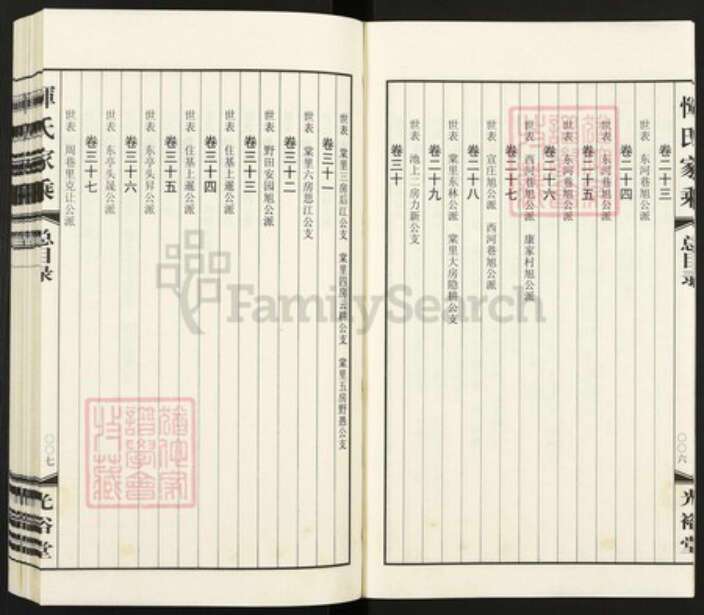 恽氏家乘
总目录
〇〇六
光裕堂
卷二十三
世表 东河巷旭公派
卷二十四
世表 东河巷旭公派
卷二十五
世表 东河巷旭公派
卷二十六
世表 西河巷旭公派 康家村旭公派
卷二十七
世表 宣庄旭公派 西河巷旭公派
卷二十八
世表 棠里东林公派 棠里大房隐耕公支
卷二十九
世表 池上二房力新公支
卷三十
世表 棠里三房后江公支 棠里四房云耕公支 棠里五房野愚公支
卷三十一
世表 棠里六房思江公支
卷三十二
世表 野田安园旭公派
卷三十三
世表 住基上暹公派
卷三十四
世表 住基上暹公派
卷三十五
世表 东亭头昇公派
卷三十六
世表 东亭头晟公派
卷三十七
世表 周巷里克让公派
恽氏家乘
总目录
〇〇七
光裕堂
FamilySearch